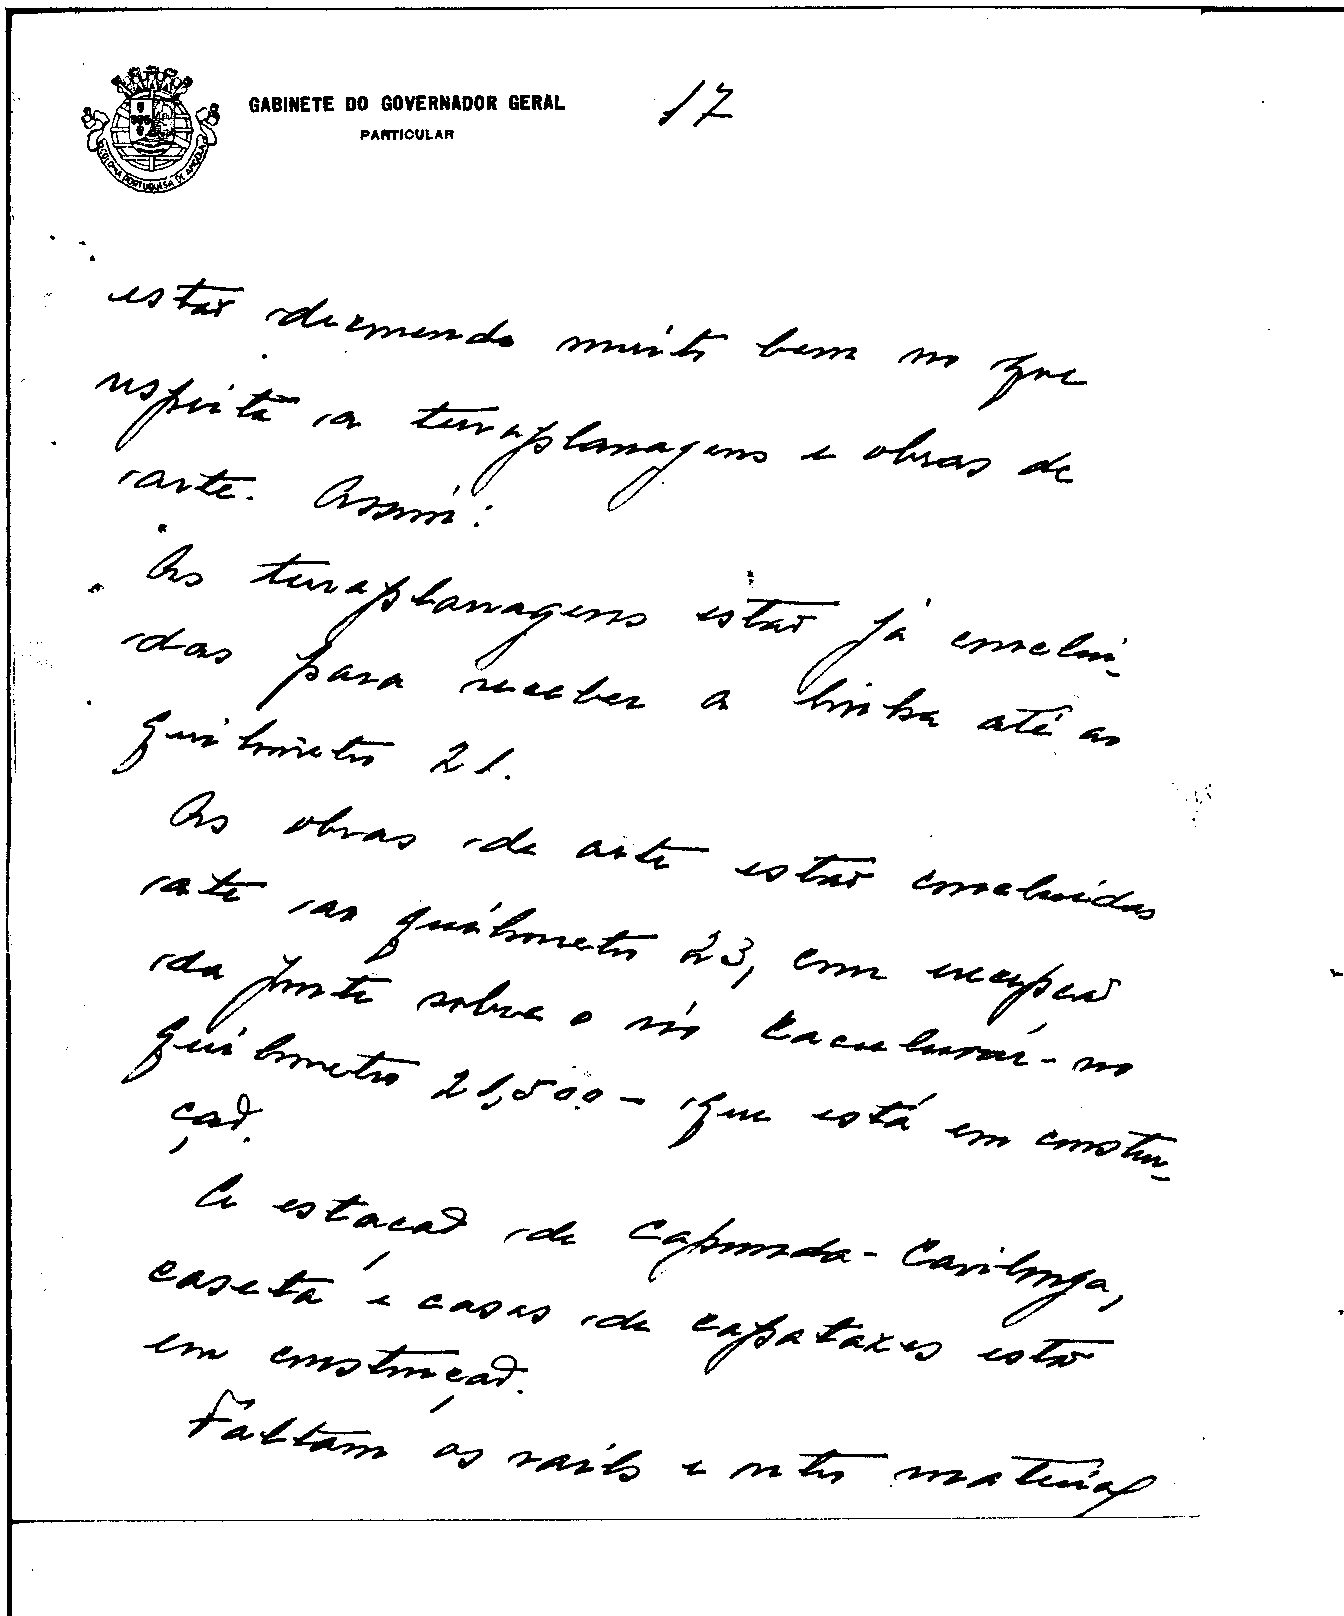 GABINETE DO GOVERNADOR GERAL
PARTICULAR
17
COLONIA PORTUGUESA DE ANGOLA
estão decorrendo muito bem no que
respeita a terraplanagens e obras de
arte. Assim:
As terraplanagens estão já conclui-
das para receber a linha até ao
quilómetro 21.
As obras de arte estão concluidas
até ao quilometro 23, com excepção
da ponte sobre o rio Caculuvar - no
quilometro 21,500 - que está em constru-
ção.
A estação de Capunda-Cavilongo,
caseta e casas de capatazes estão
em construção.
Faltam os rails e outro material